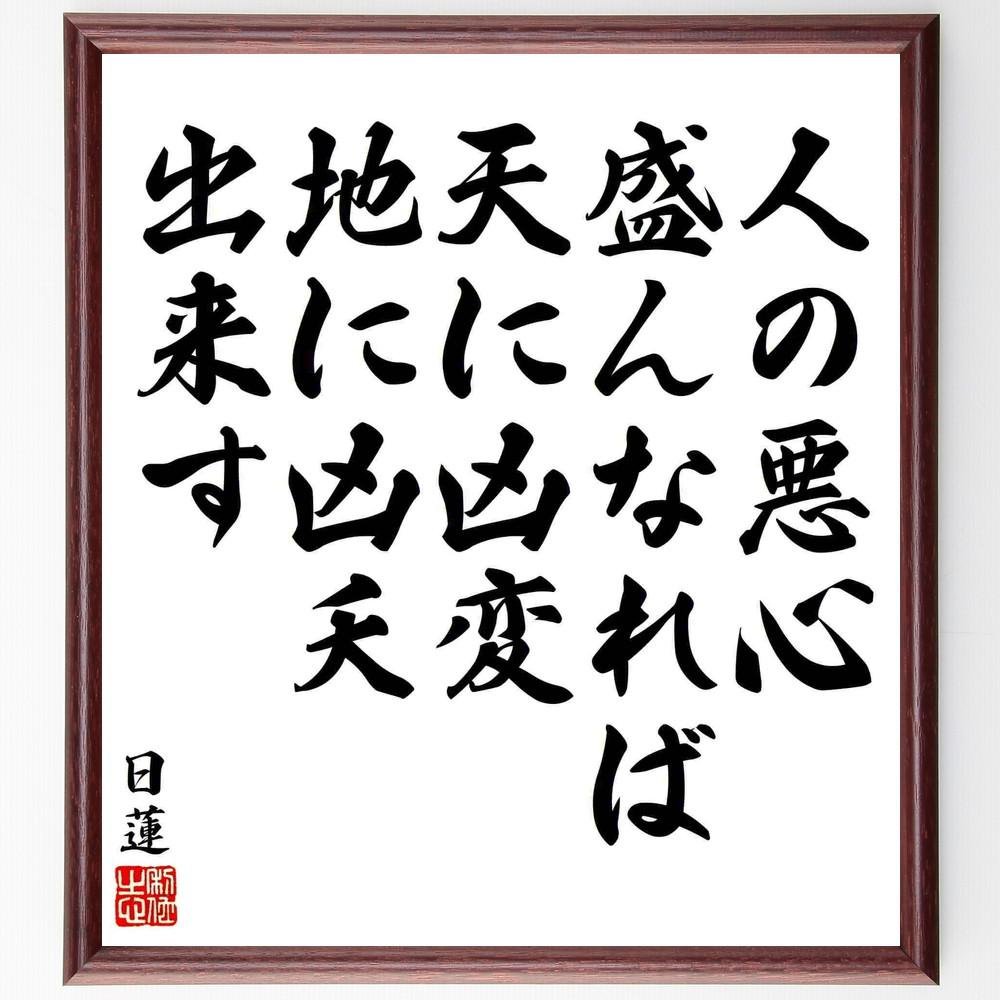 人の悪心
盛んなれば
天に凶変
地に凶夭
出来す
日蓮